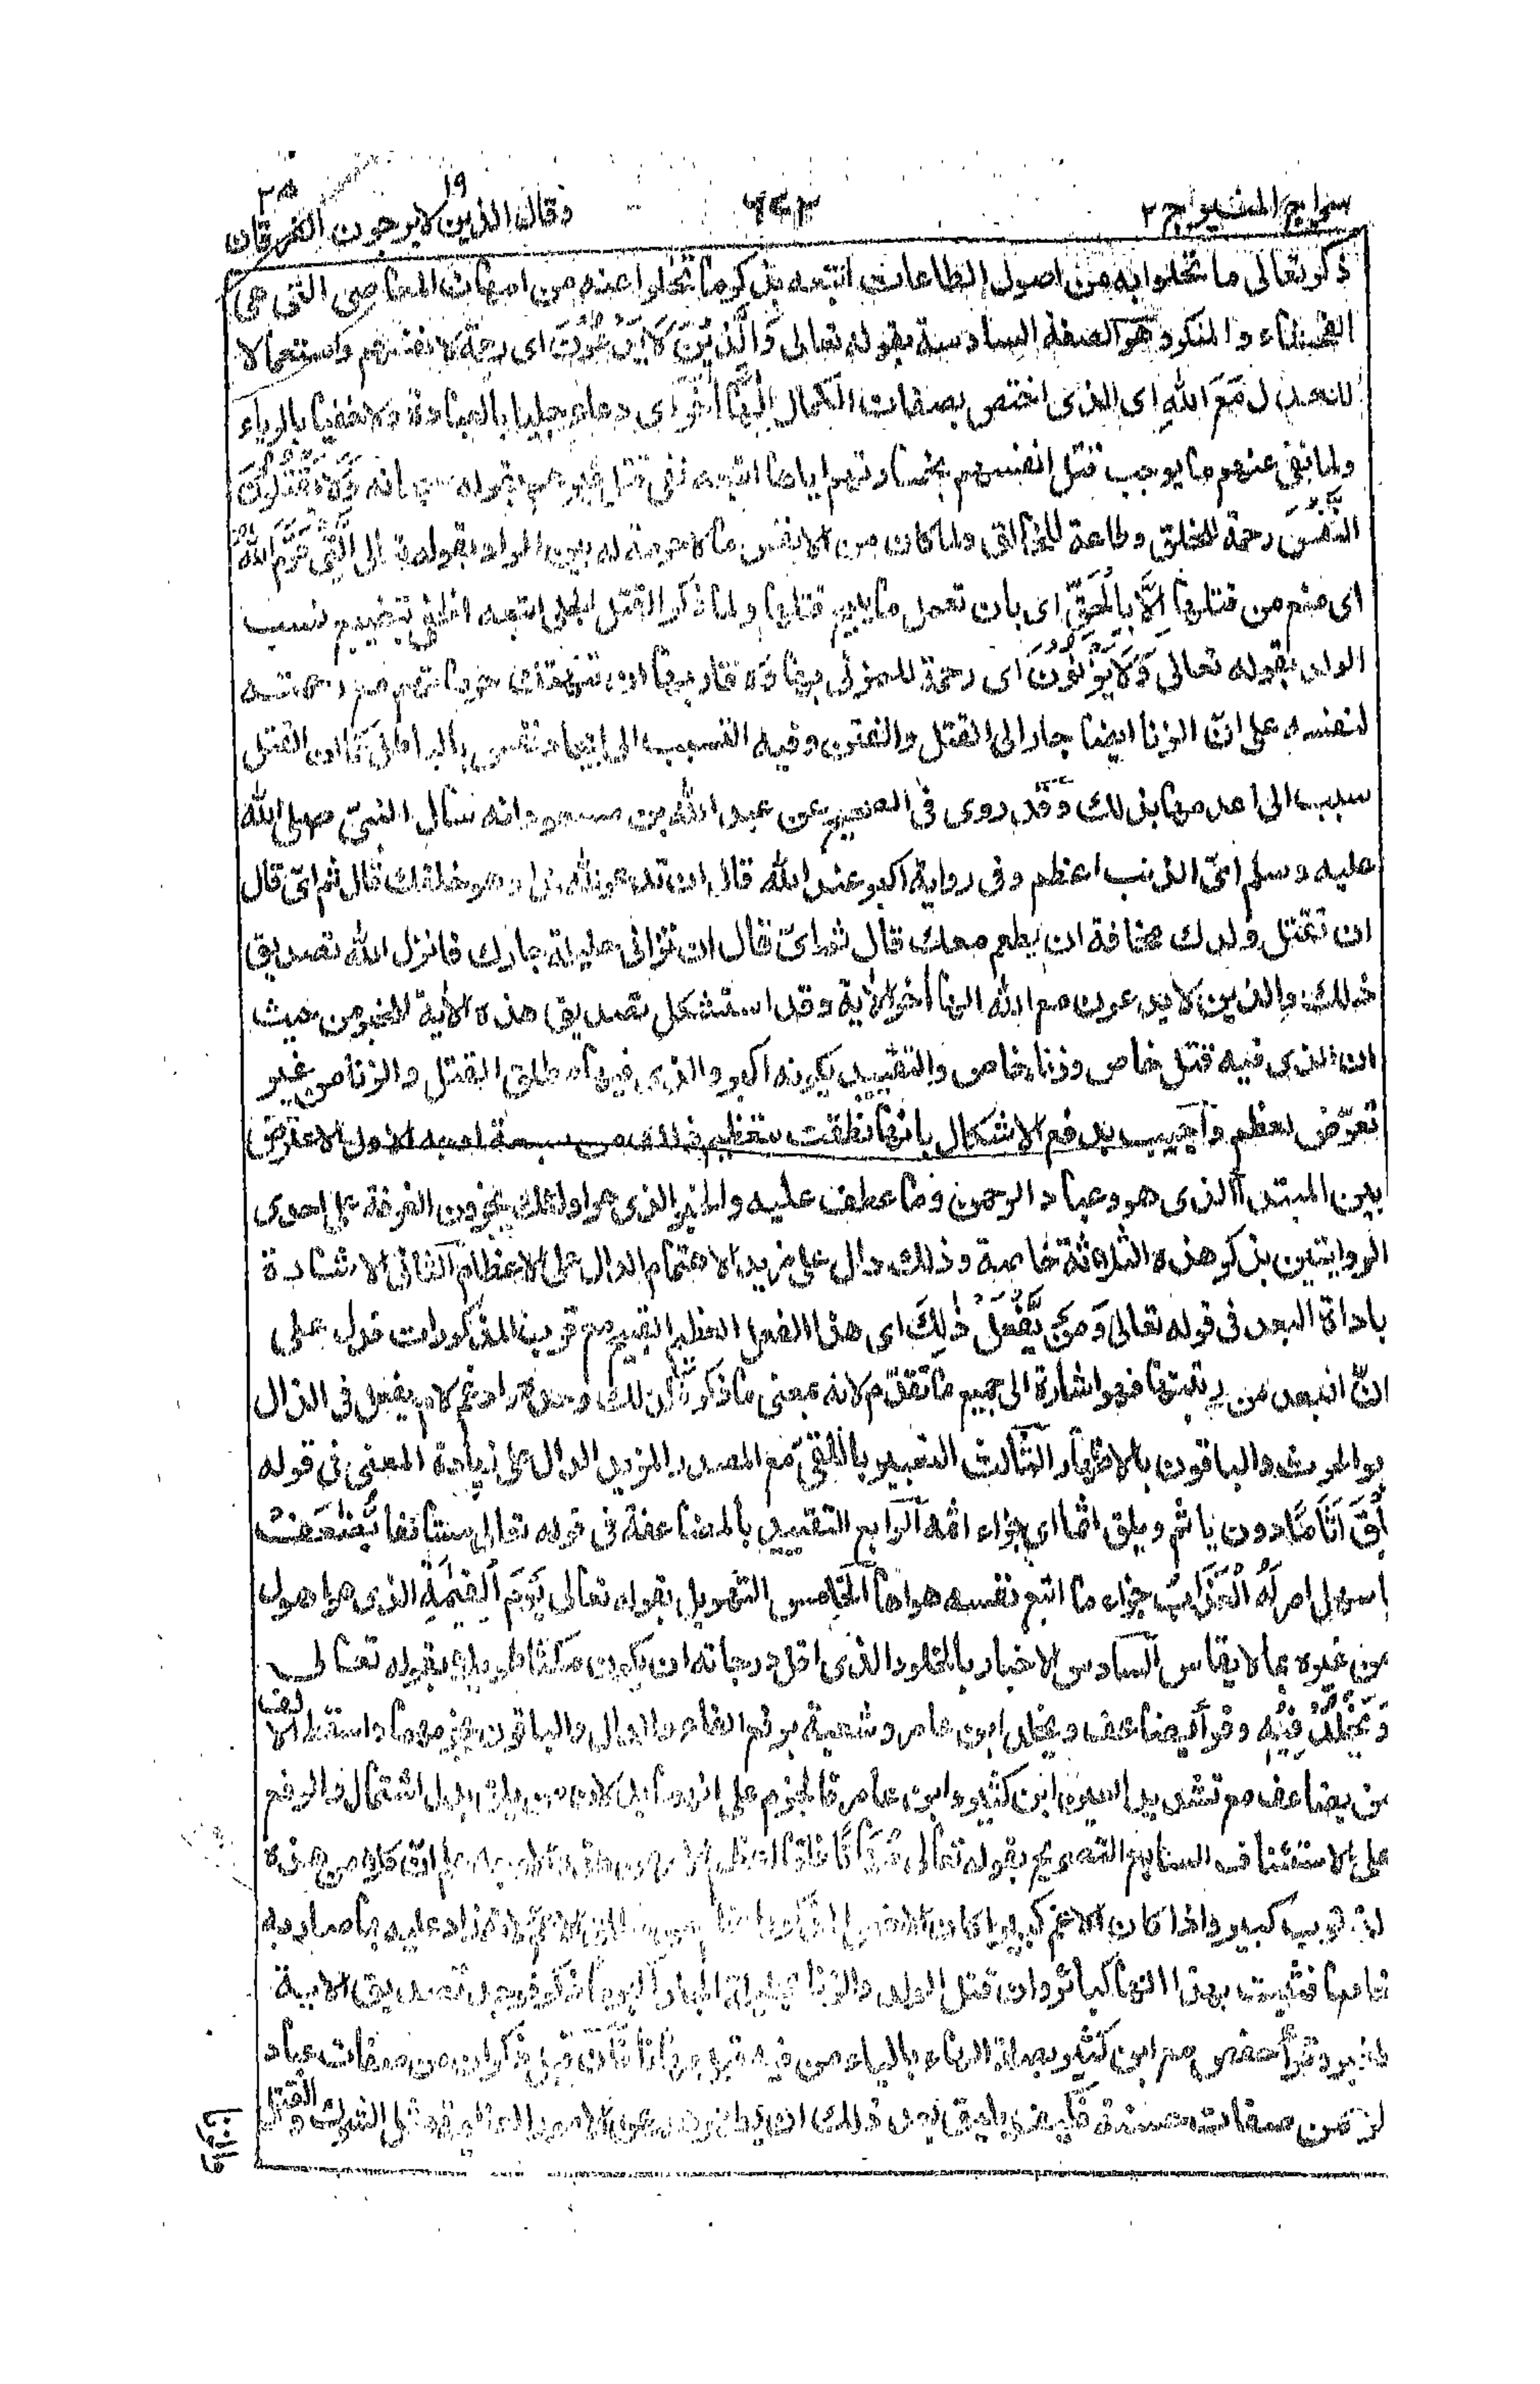 سراج المنير ج ٢
٦٤٢
وقال الذين لا يرجون ١٩ الفرقان ٢٥
ذكر تعالى ما تحلوا به من اصول الطاعات اتبعه بذكر ما تخلوا عنه من امهات المعاصى التى هى
الفحشاء والمنكر وهو الصفة السادسة بقوله تعالى وَالَّذِيْنَ لَا يَدْعُوْنَ اى رحمة لانفسهم واستعمالا
للعدل مَعَ اللّٰهِ اى الذى اختص بصفات الكمال اِلٰهًا اٰخَرَ اى دعاء جليا بالعبادة ولا خفيا بالرياء
ولما نفى عنهم ما يوجب قتل انفسهم بخسارتهم اياها اتبعه نفى قتل غيرهم بقوله سبحانه وَلَا يَقْتُلُوْنَ
النَّفْسَ رحمة للخلق وطاعة للخالق ولما كان من الانفس ما لا حرمة له بين المراد بقوله تعالى الَّتِىْ حَرَّمَ اللّٰهُ
اى منع من قتلها اِلَّا بِالْحَقِّ اى بان تعمل ما يبيح قتلها ولما ذكر القتل الجلى اتبعه الخفى بتضييع نسب
الولد بقوله تعالى وَلَا يَزْنُوْنَ اى رحمة للمزنى بها ولاقاربها ان تنهتك حرماتهم مع رحمته
لنفسه على انّ الزنا ايضا جار الى القتل والفتن وفيه التسبب الى ايجاد نفس بالباطل كما ان القتل
سبب الى اعدامها بذلك وَقَد روى فى الصحيح عن عبد الله بن مسعود انه سأل النبىّ صلى الله
عليه وسلم اىّ الذنب اعظم وفى رواية اكبر عند الله قال ان تدعو لله ندا وهو خلقك قال ثم اىّ قال
ان تقتل ولدك مخافة ان يطعم معك قال ثم اىّ قال ان تزانى حليلة جارك فانزل الله تصديق
ذلك والذين لا يدعون مع الله الها أخر الأية وقد استشكل تصديق هذه الأية للخبر من حيث
ان الذى فيه قتل خاص وزنا خاص والتقييد بكونه اكبر والذى فيها مطلق القتل والزنا من غير
تعرّض لعظم وأجيب بدفع الاشكال بانها نطقت بتعظيم ذلك من سبعة اوجه الاول الاعتراض
بين المبتدأ الذى هو وعباد الرحمن وما عطف عليه والخبر الذى هو اولئك يجزون الغرفة على احدى
الروايتين بذكر هذه الثلاثة خاصة وذلك دال على مزيد الاهتمام الدال على الاعظام الثانى الاشارة
باداة البعد فى قوله تعالى وَمَنْ يَّفْعَلْ ذٰلِكَ اى هذا الفعل العظيم القبيح مع قرب المذكورات فدل على
انّ البعد من رتبتها فهو اشارة الى جميع ما تقدّم لانه بمعنى ما ذكر ولذلك وحد وادغم لام يفعل فى الذال
ابو الحرث والباقون بالاظهار الثالث التعبير باللقىّ مع المصدر المزيد الدال على زيادة المعنى فى قوله
يَلْقَ اَثَامًا دون يأثم ويلق اثما اى جزاء اثمه الرابع التقييد بالمضاعفة فى قوله تعالى مستأنفا يُّضٰعَفْ
باسهل امر لَهُ الْعَذَابُ جزاء ما اتبع نفسه هواها الخامس التهويل بقوله تعالى يَوْمَ الْقِيٰمَةِ الذى هو اهول
من غيره بما لا يقاس السادس الاخبار بالخلود الذى اقل درجاته ان يكون مكثا طويلا بقوله تعالى
وَيَخْلُدْ فِيْهٖ وقرأ يضاعف ويخلد ابن عامر وشعبة برفع الفاء والدال والباقون بجزمهما واسقط الالف
من يضاعف مع تشديد العين ابن كثير وابن عامر فالجزم على انهما بدلان من يلق بدل اشتمال والرفع
على الاستئناف السابع التصريح بقوله تعالى مُهَانًا فلما عظم الامر من هذه الاوجه علم انّ كلا من هذه
الذنوب كبير واذا كان الاعم كبيرا كان الاخص المذكور اعظم من مطلق الاعم لانه زاد عليه بما صار به
خاصا فثبت بهذا انها كبائر وان قتل الولد والزنا بحليلة الجار اكبر لما ذكر فوجد تصديق الاية
للخبر وقرأ حفص مع ابن كثير بصلة الهاء بالياء من فيه قبل مهانا فَاِن قيل ذكر ان من صفات عباد
الرحمن صفات حسنة فكيف يليق بعد ذلك ان يطهرهم عن الامور العظيمة مثل الشرك والقتل
والزنا